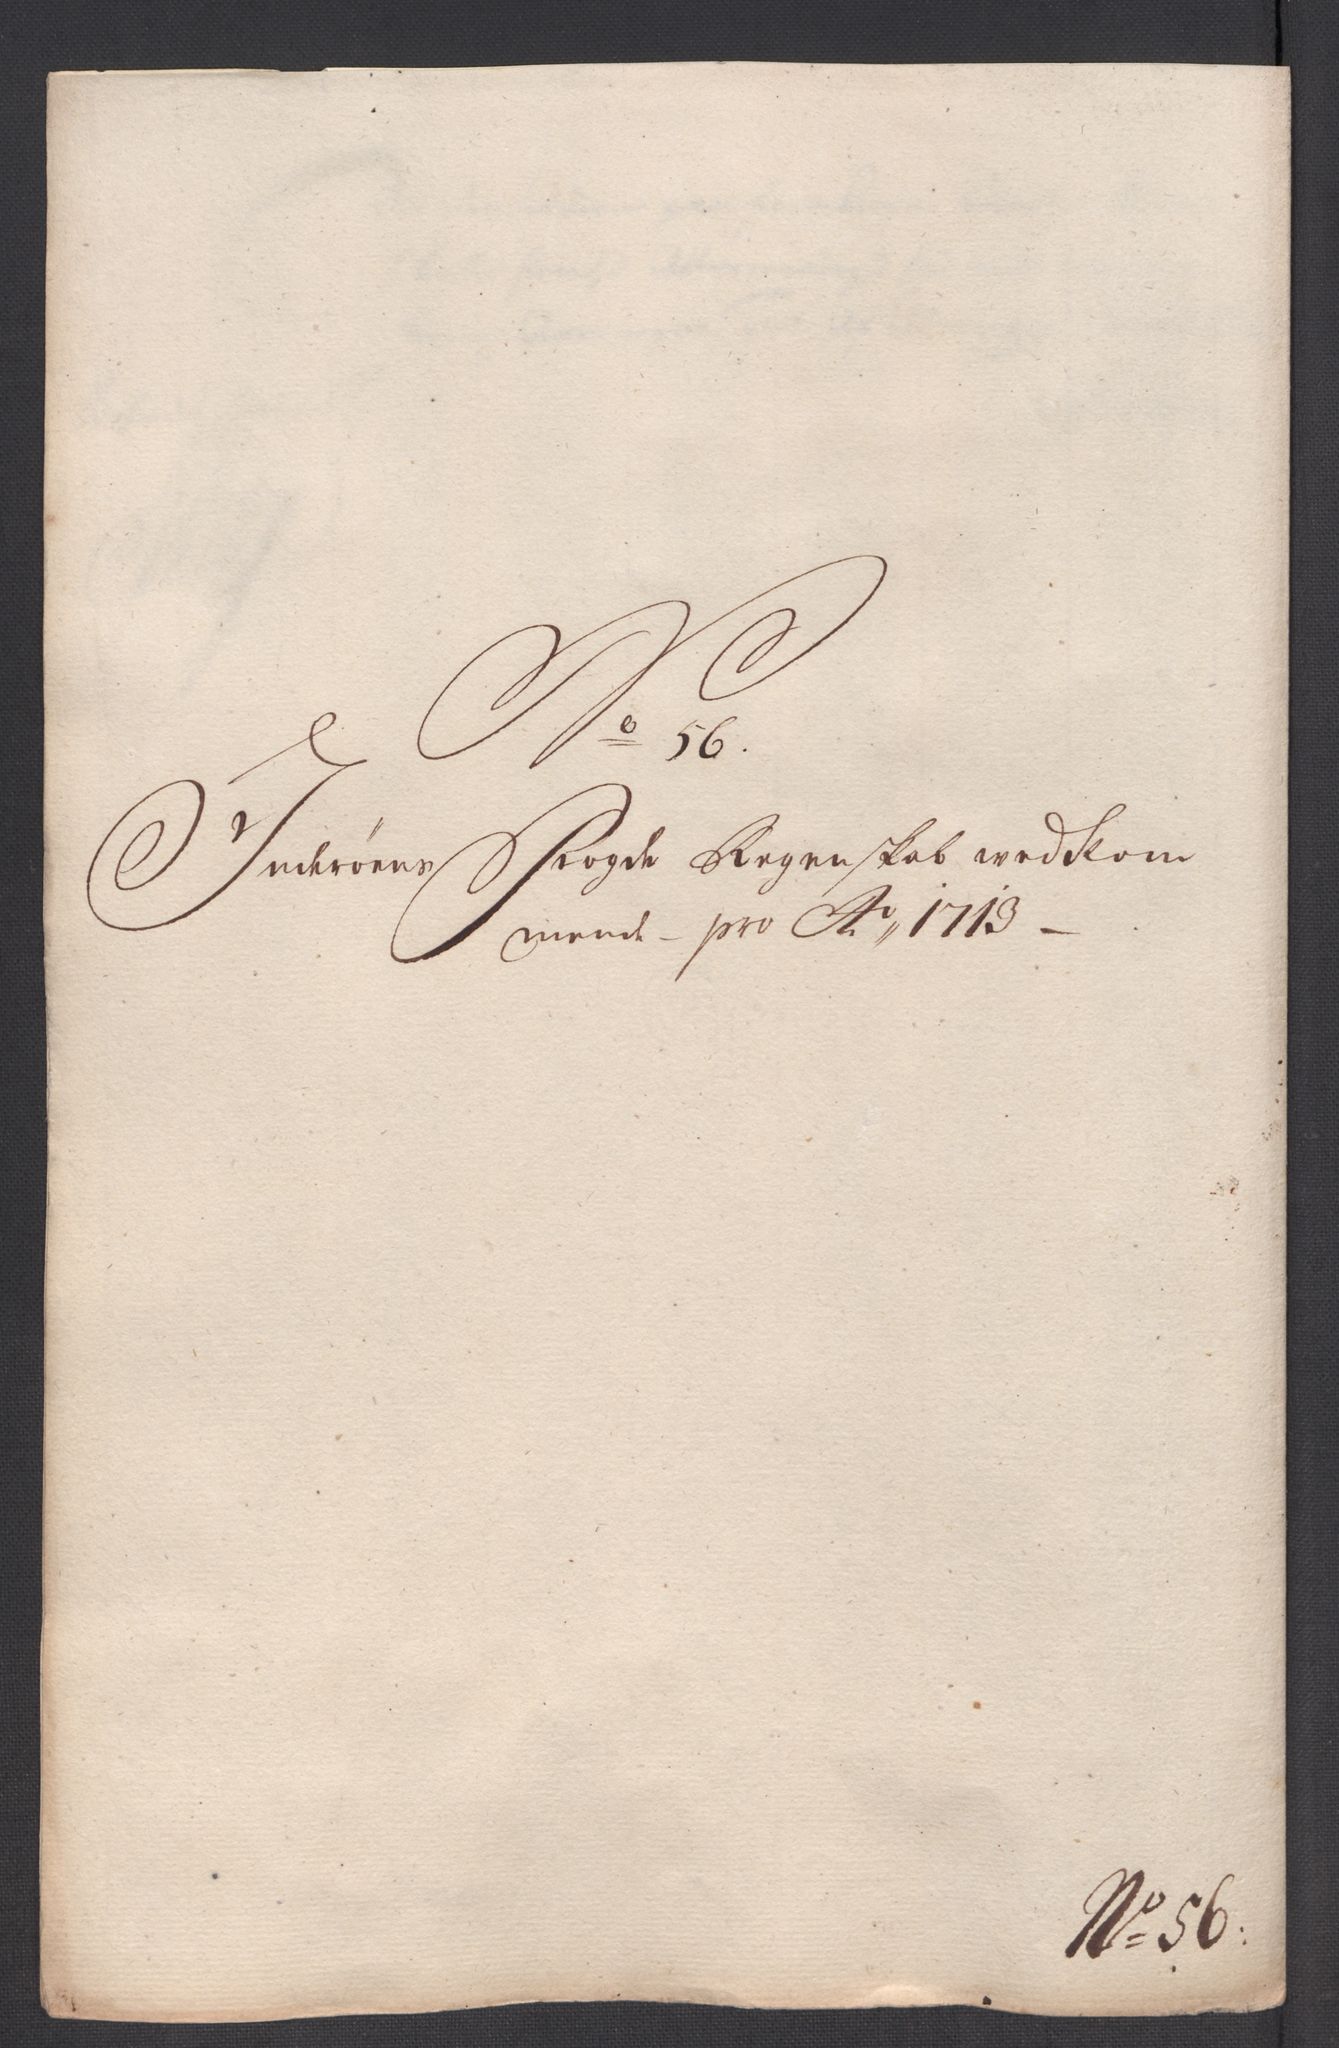 No 56.
Inderöens Fogde Regenskab vedkom
mende – pro Ao, 1713 –
No 56: